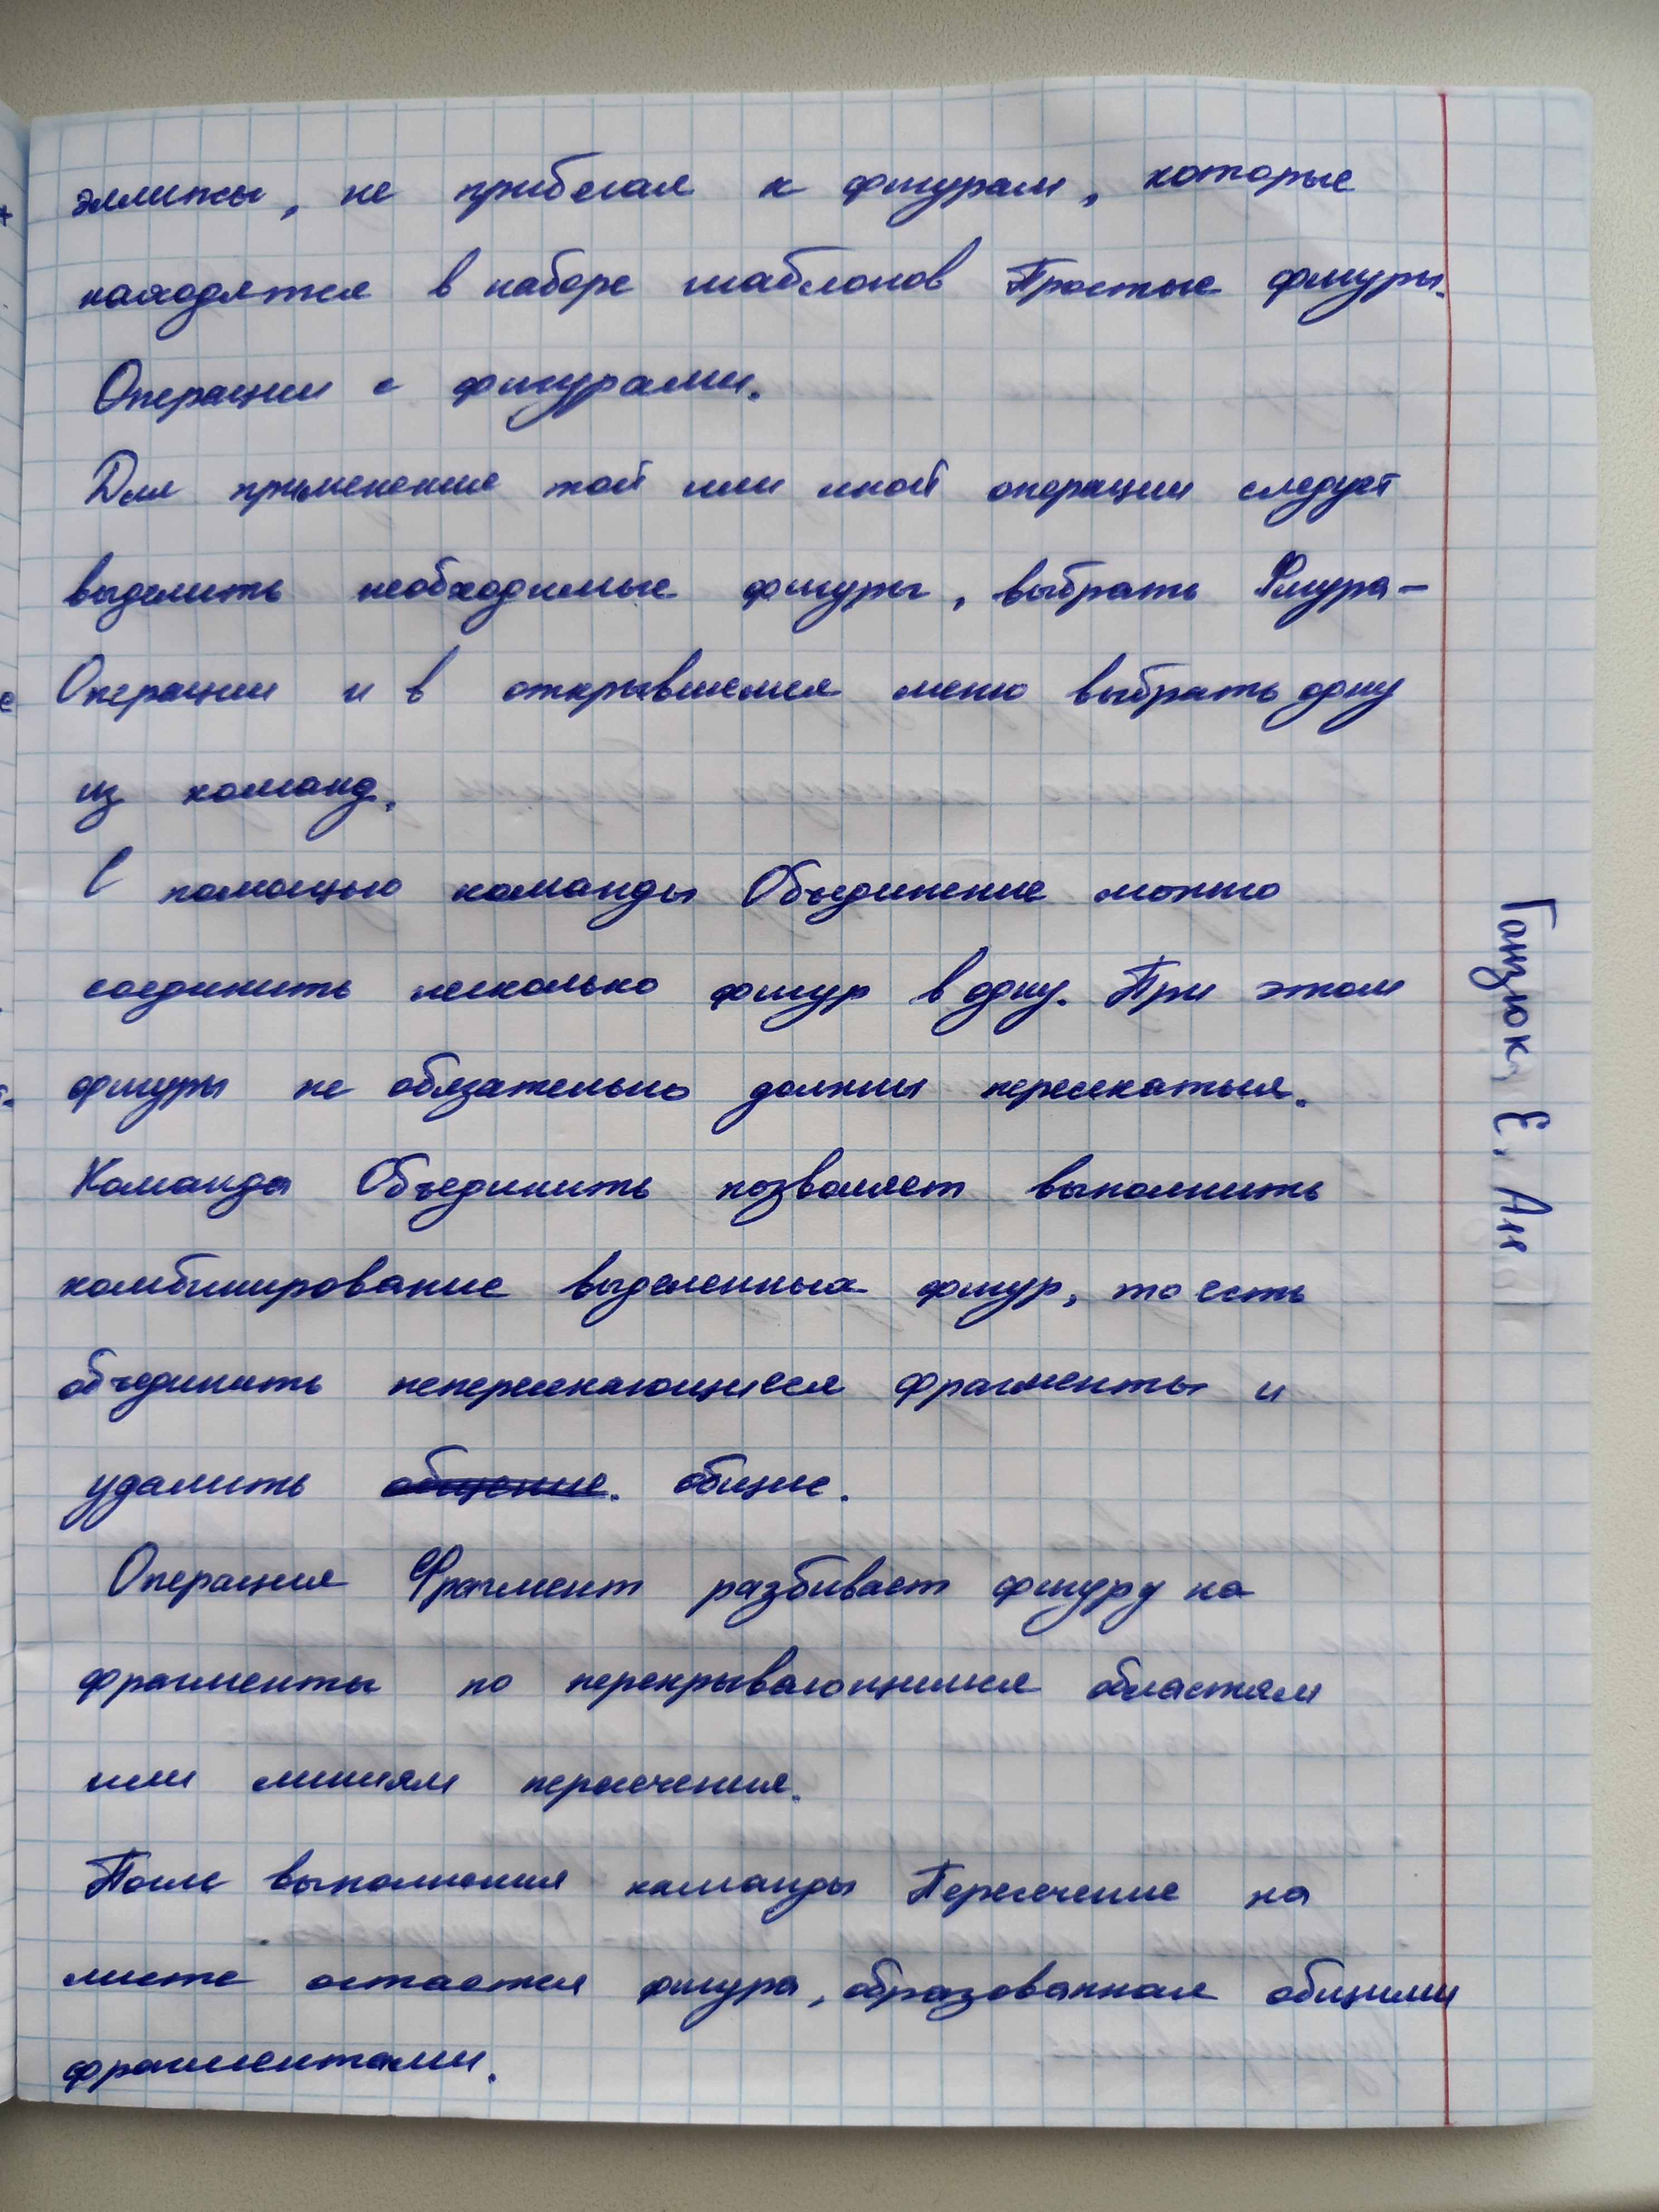 эллипсы, не прибегая к фигурам, которые
находятся в наборе шаблонов Простые фигуры.
Операции с фигурами.
Для применения той или иной операции следует
выделить необходимые фигуры, выбрать Фигура-
Операции и в открывшемся меню выбрать одну
из команд.
С помощью команды Объединение можно
соединить несколько фигур в одну. При этом
фигуры не обязательно должны пересекаться.
Команда Объединить позволяет выполнить
комбинирование выделенных фигур, то есть
объединить непересекающиеся фрагменты и
удалить общие.
Операция Фрагмент разбивает фигуру на
фрагменты по перекрывающимся областям
или линиям пересечения.
После выполнения команды Пересечение на
листе остается фигура, образованная общими
фрагментами.
Гацюк, Е. Ан